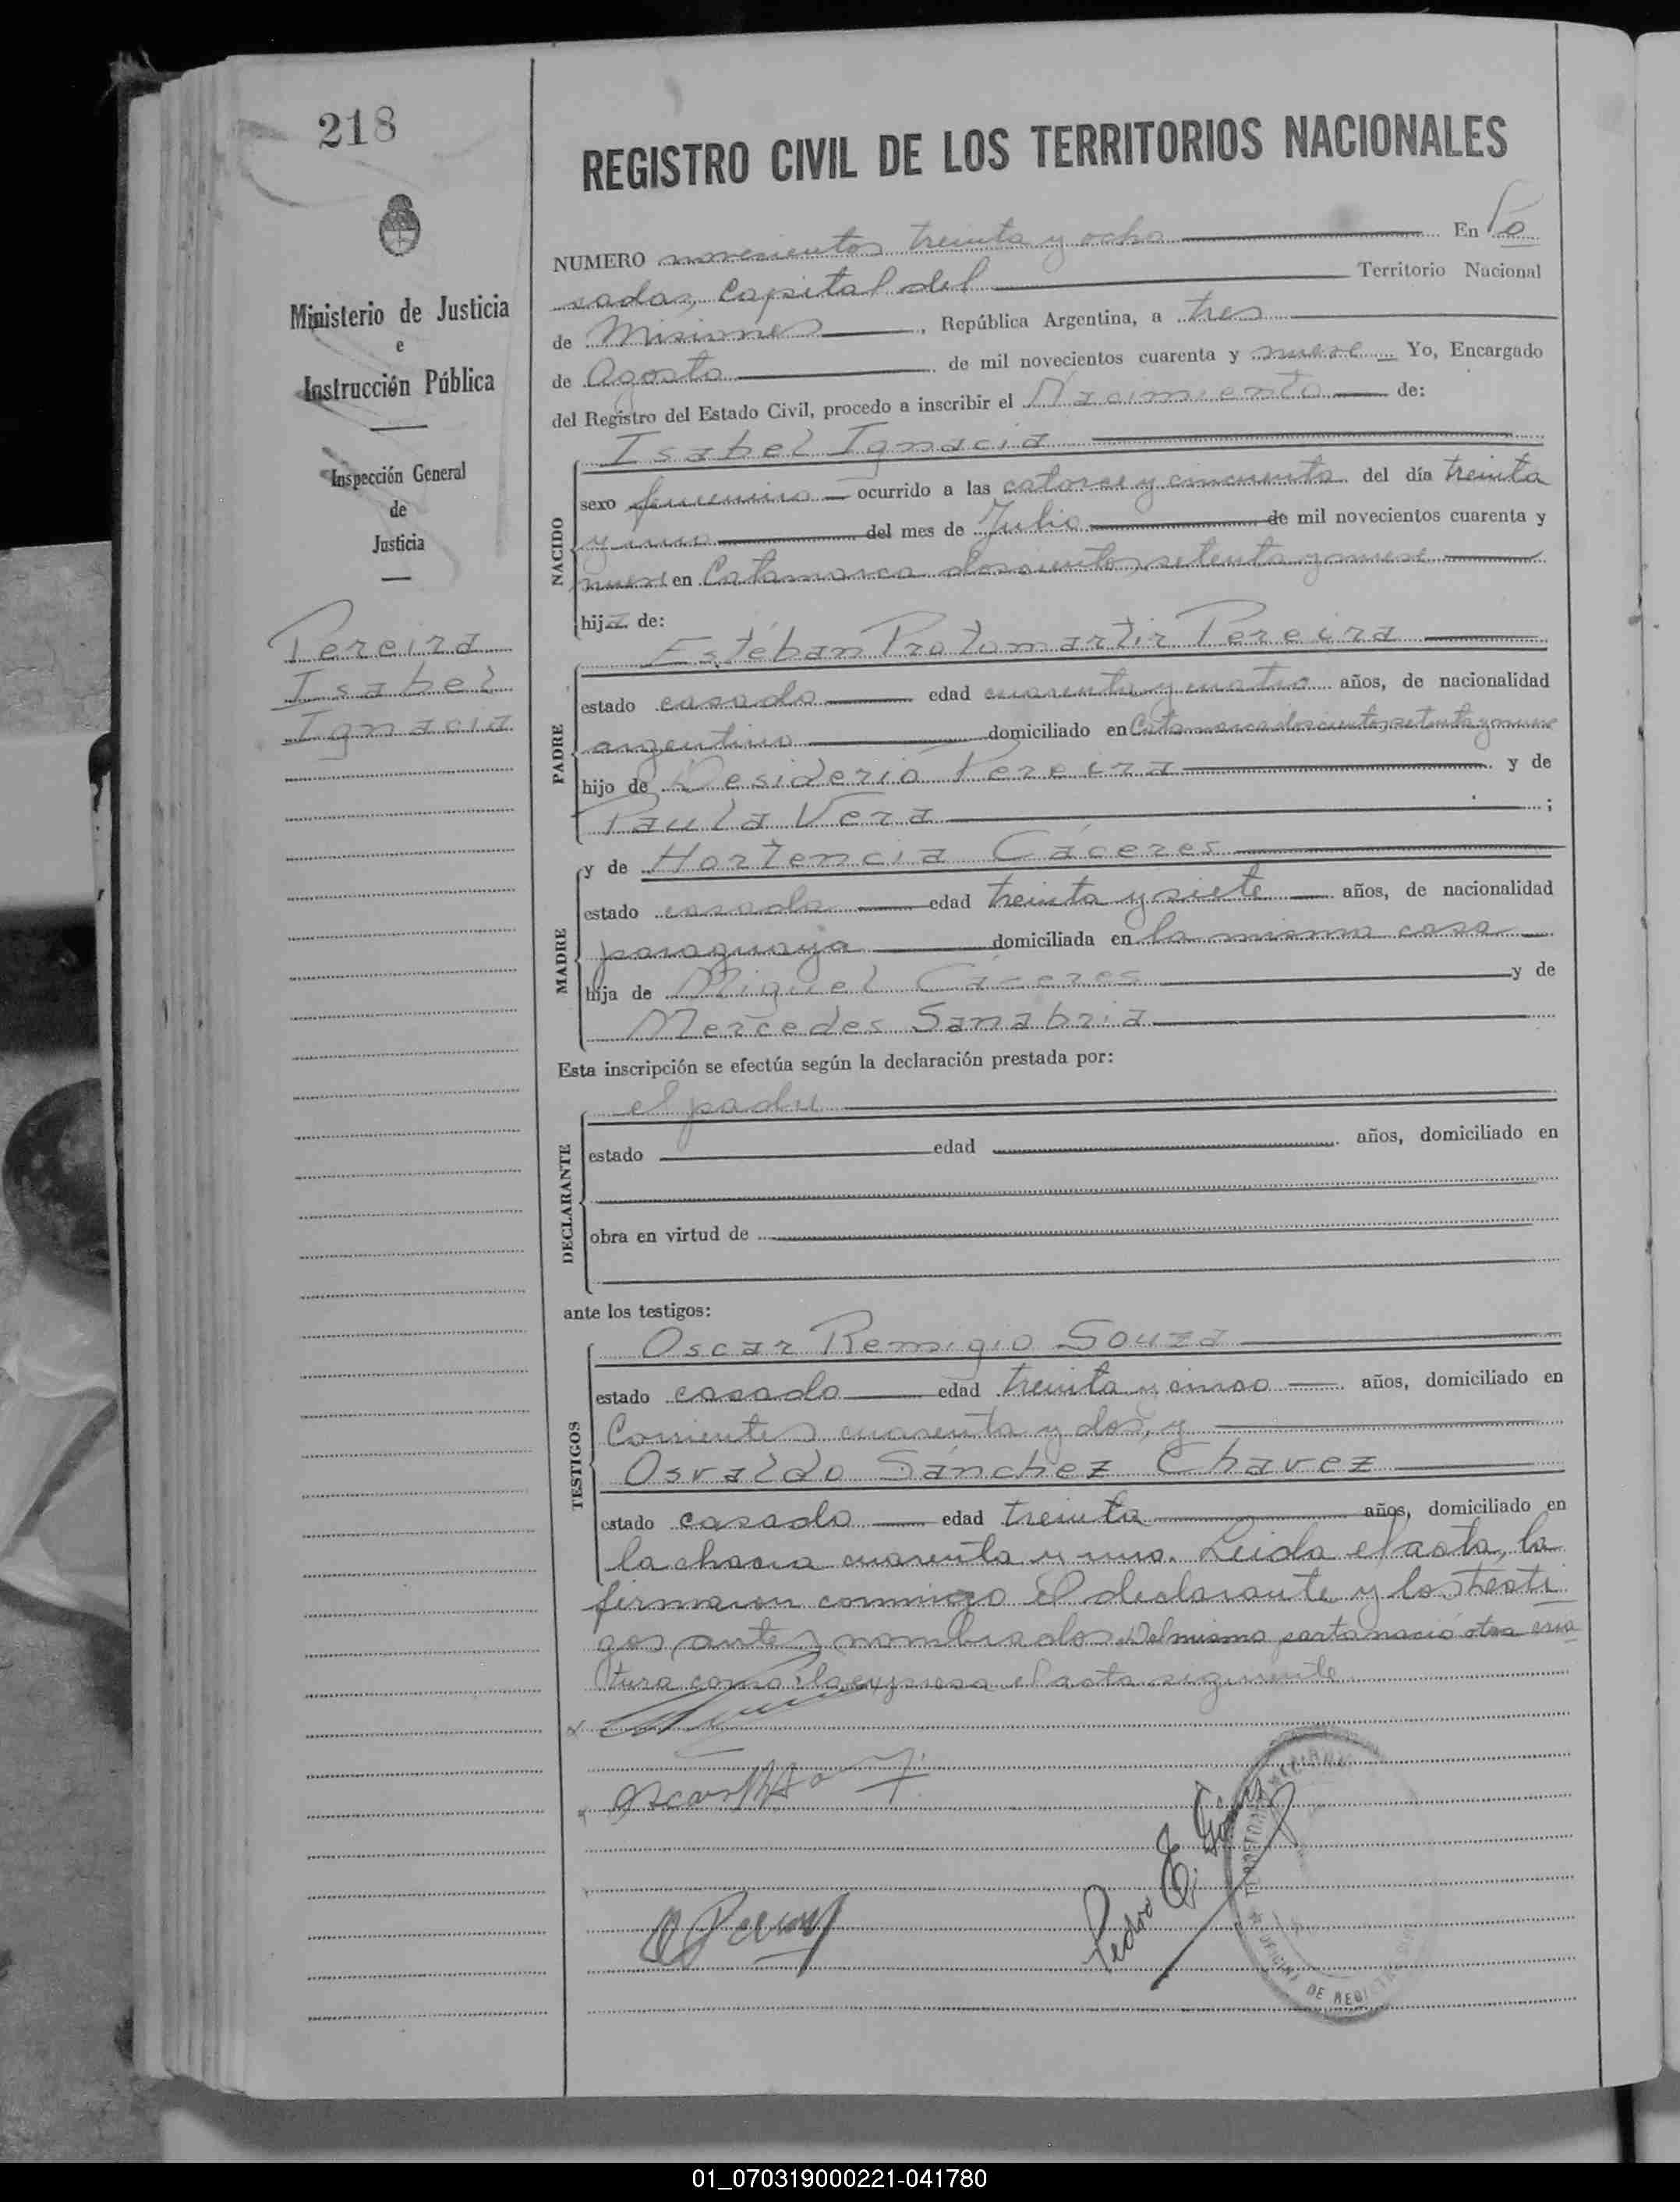 218
REGISTRO CIVIL DE LOS TERRITORIOS NACIONALES
NUMERO novecientos treinta y ocho En Po
sadas, Capital del Territorio Nacional
de Misiones, República Argentina, a tres
de Agosto de mil novecientos cuarenta y nueve Yo, Encargado
del Registro del Estado Civil, procedo a inscribir el Nacimiento de:
Ministerio de Justicia
e
Instrucción Pública
Inspección General
de
Justicia
Pereira
Isabel
Ignacia
NACIDO
Isabel Ignacia
sexo femenino ocurrido a las catorce y cincuenta del día treinta
y uno del mes de Julio de mil novecientos cuarenta y
nueve en Catamarca doscientos setenta y nueve
hija de:
PADRE
Estéban Protomartir Pereira
estado casado edad cuarenta y cuatro años, de nacionalidad
argentino domiciliado en Catamarca doscientos setenta y nueve
hijo de Desiderio Pereira y de
Paula Vera ;
MADRE
y de Hortencia Cáceres
estado casada edad treinta y siete años, de nacionalidad
paraguaya domiciliada en la misma casa
hija de Miguel Cáceres y de
Mercedes Sanabria
Esta inscripción se efectúa según la declaración prestada por:
DECLARANTE
el padre
estado edad años, domiciliado en
obra en virtud de
ante los testigos:
TESTIGOS
Oscar Remigio Souza
estado casado edad treinta y cinco años, domiciliado en
Corrientes cuarenta y dos, y
Osvaldo Sánchez Chavez
estado casado edad treinta años, domiciliado en
la chacra cuarenta y uno. Leida el acta, la
firmaron conmigo el declarante y los testi
gos antes nombrados. Del mismo parto nació otra cria
tura como lo expresa el acta siguiente
Pedro E. Gómez
OFICINA DE REGISTRO
01_070319000221-041780